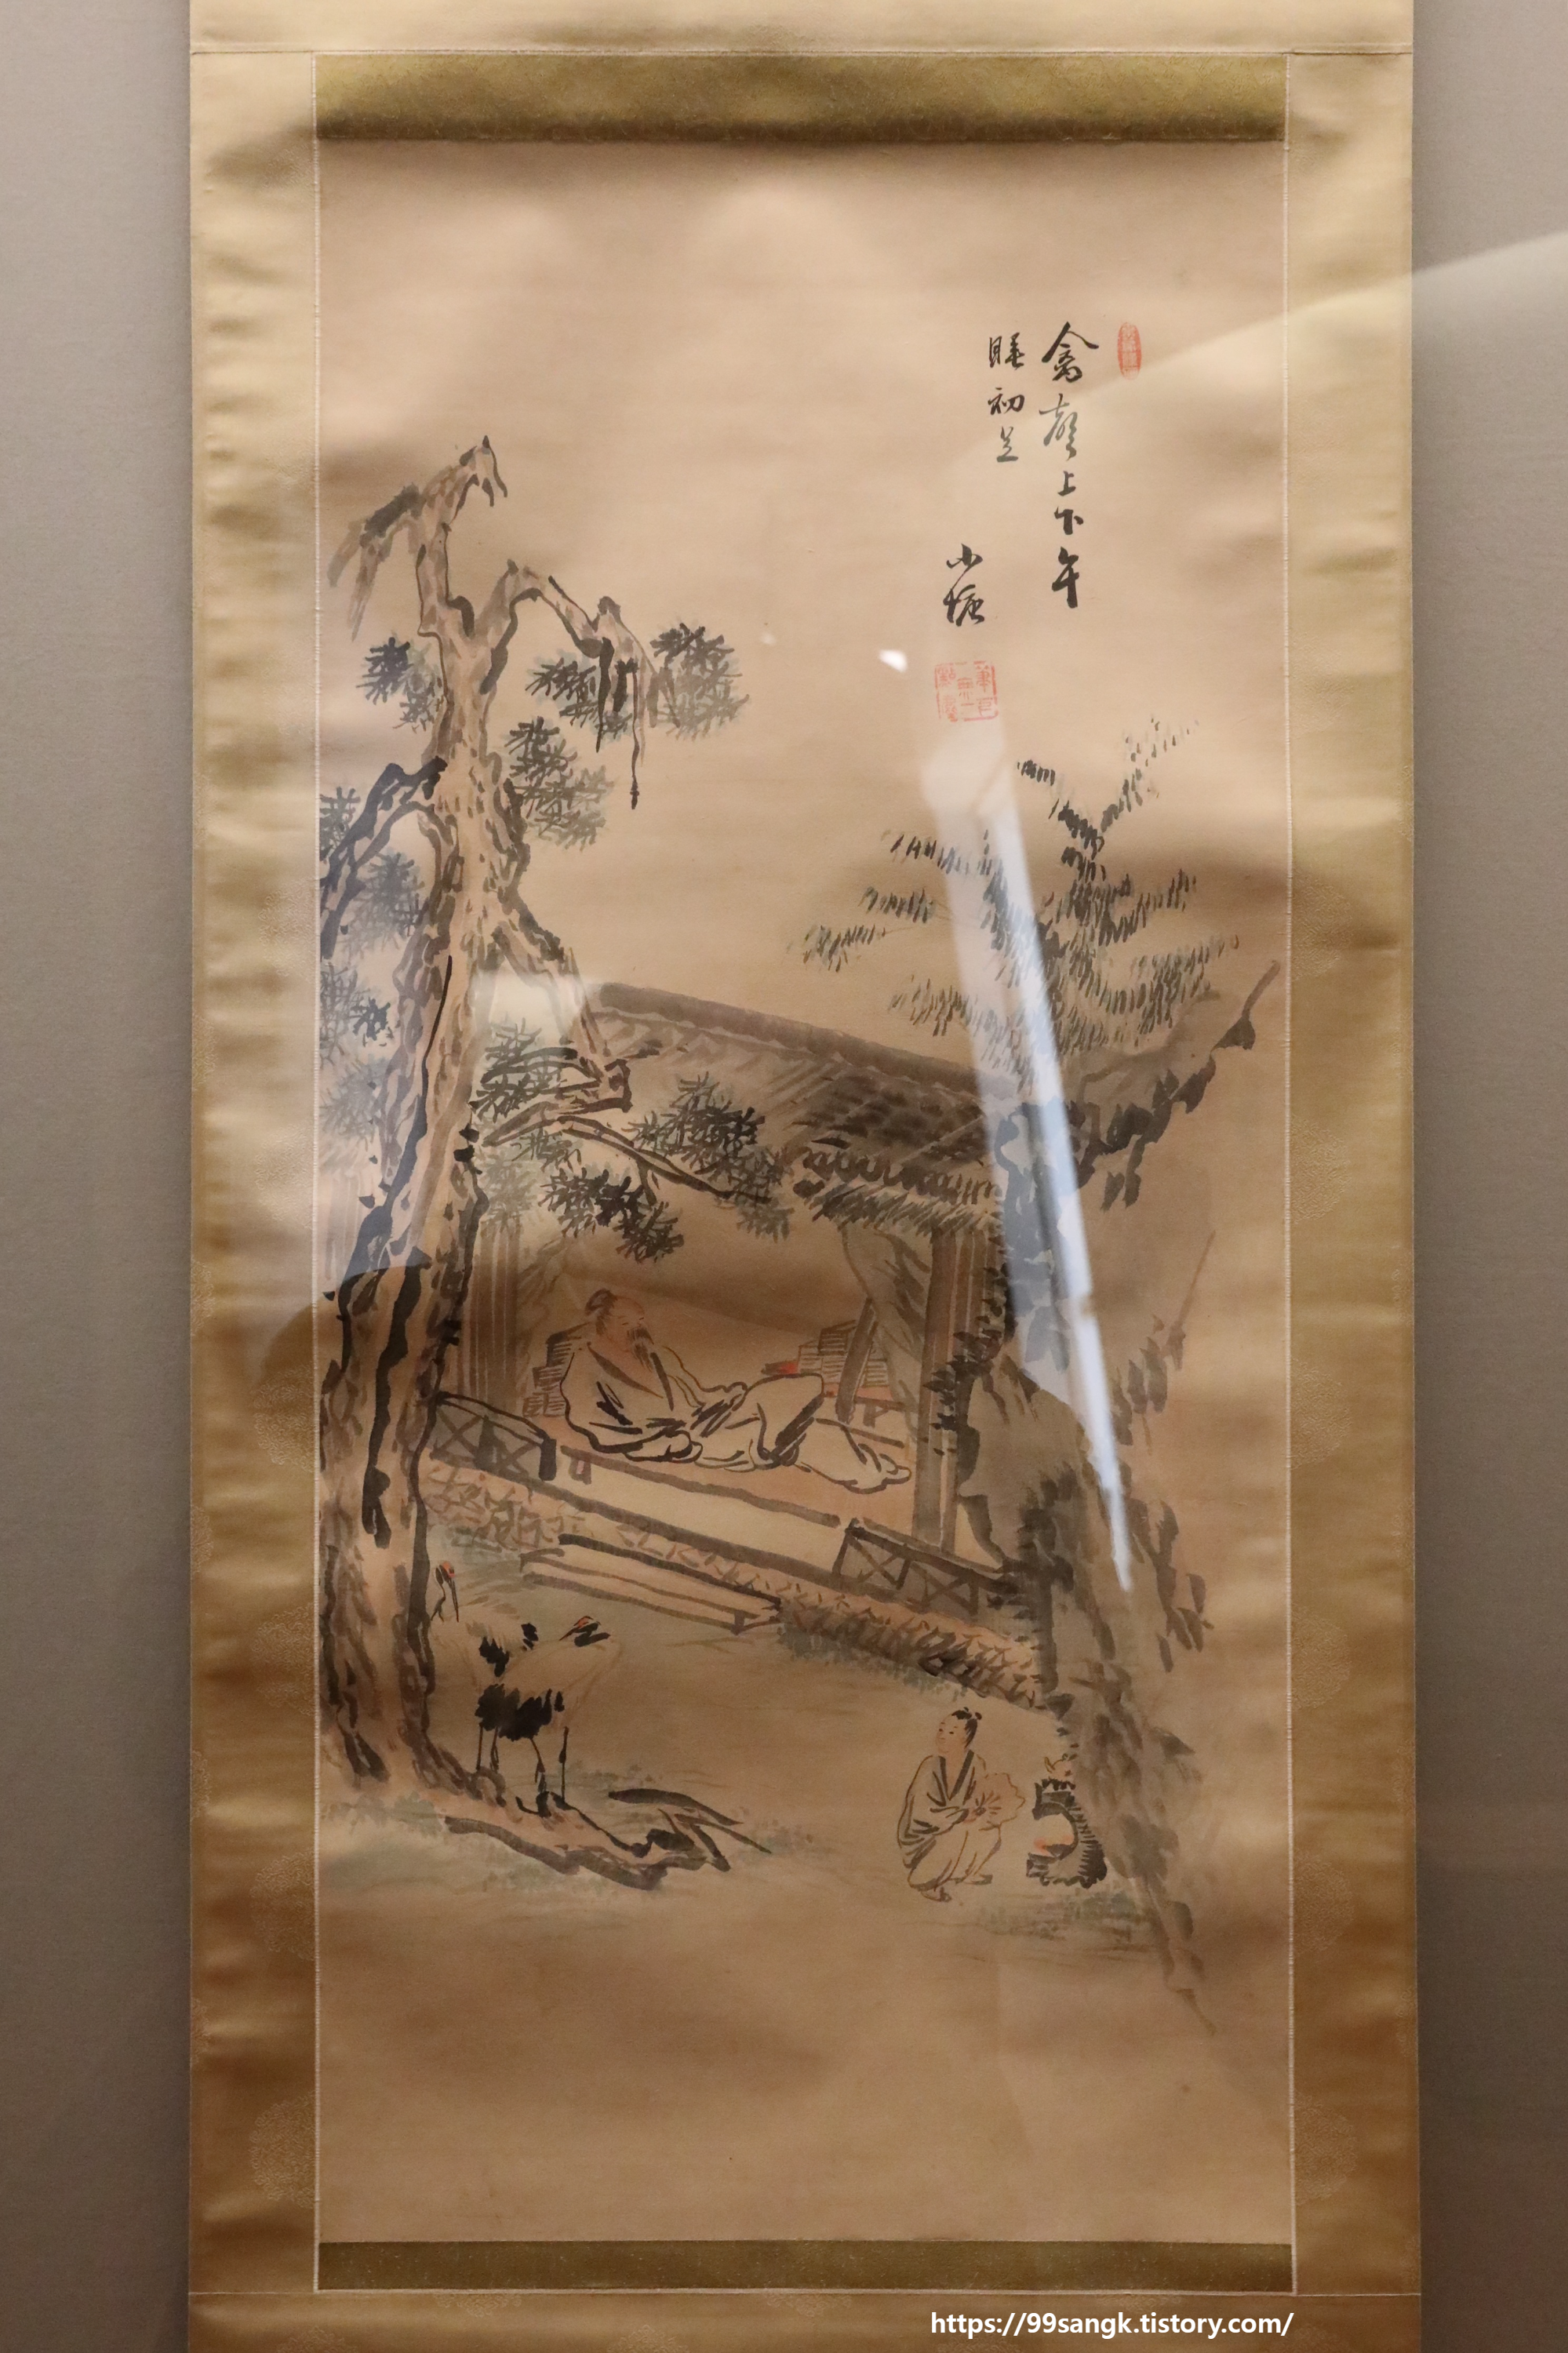 禽聲上下午
睡初足
小塘
https://99sangk.tistory.com/